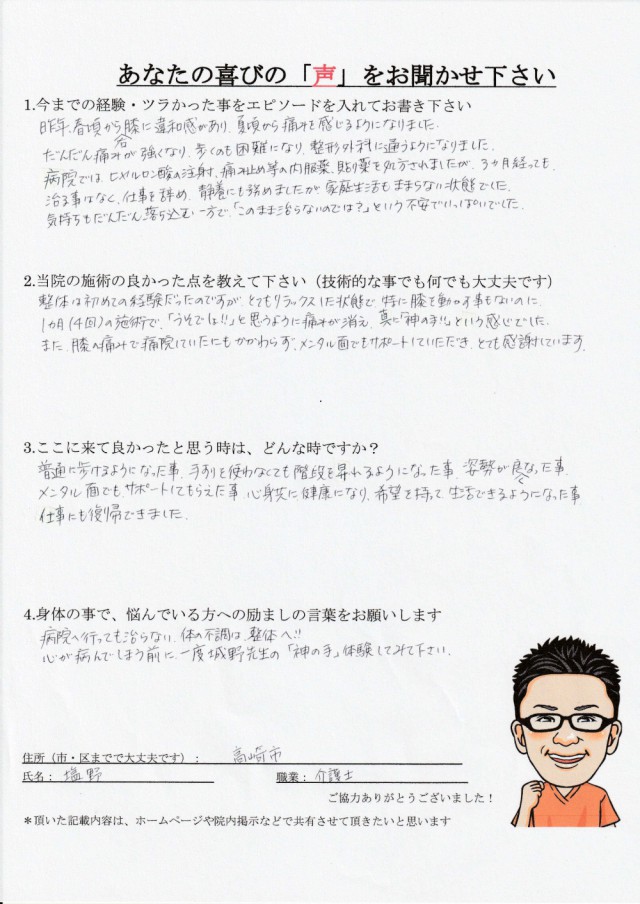 あなたの喜びの「声」をお聞かせ下さい
1.今までの経験・ツラかった事をエピソードを入れてお書き下さい
昨年、春頃から右膝に違和感があり、夏頃から痛みを感じるようになりました。
だんだん痛みが強くなり、歩くのも困難になり、整形外科に通うようになりました。
病院では、ヒアルロン酸の注射、痛み止め等の内服薬、貼り薬を処方されましたが、3ヶ月経っても、
治る事はなく、仕事を辞め、静養にも努めましたが、家庭生活もままならない状態でした。
気持ちもだんだん落ち込む一方で、「このまま治らないのでは?」という不安でいっぱいでした。
2.当院の施術の良かった点を教えて下さい(技術的な事でも何でも大丈夫です)
整体は初めての経験だったのですが、とてもリラックスした状態で、特に膝を動かす事もないのに、
1ヵ月(4回)の施術で、「うそでしょ!!」と思うように痛みが消え、真に「神の手!!」という感じでした。
また、膝の痛みで痛院していたにもかかわらず、メンタル面でもサポートしていただき、とても感謝しています。
3.ここに来て良かったと思う時は、どんな時ですか?
普通に歩けるようになった事、手すりを使わなくても階段を昇れるようになった事、姿勢が良くなった事、
メンタル面でもサポートしてもらえた事、心身共に健康になり、希望を持って生活できるようになった事
仕事にも復帰できました。
4.身体の事で、悩んでいる方への励ましの言葉をお願いします
病院へ行っても治らない、体の不調は、整体へ!!
心が病んでしまう前に、一度城野先生の「神の手」体験してみて下さい。
住所(市・区までで大丈夫です): 高崎市
氏名: 塩野 職業: 介護士
ご協力ありがとうございました!
*頂いた記載内容は、ホームページや院内掲示などで共有させて頂きたいと思います